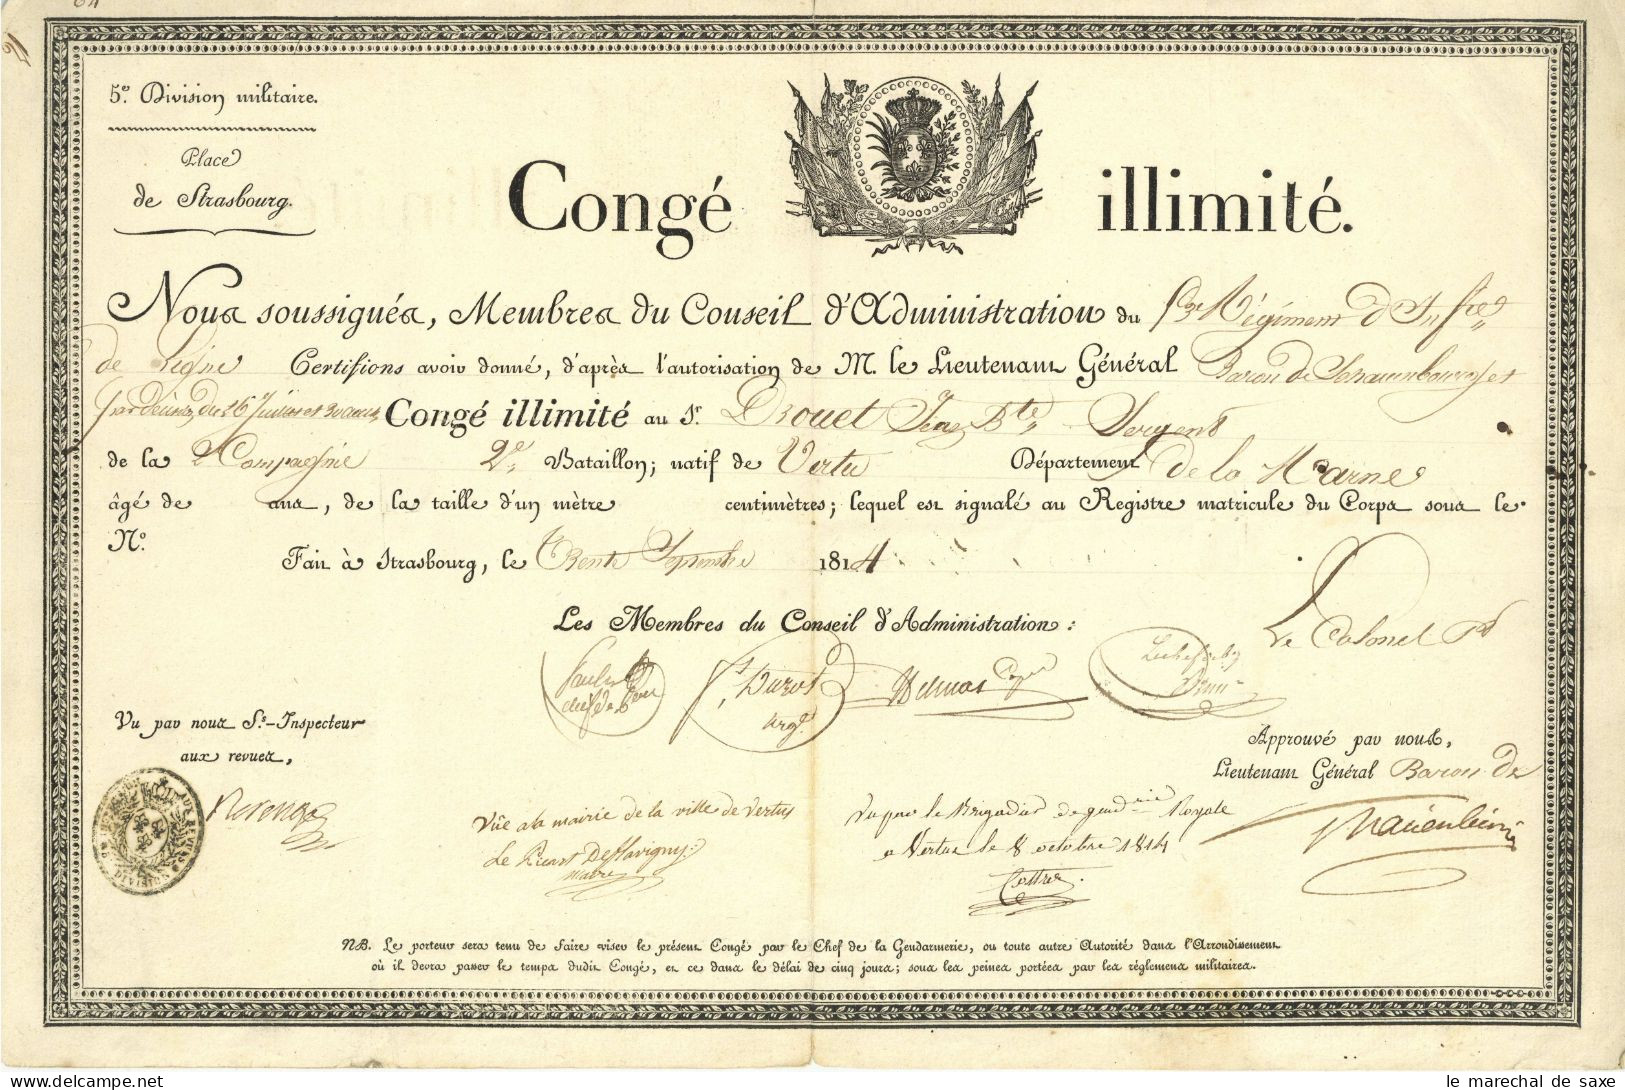 64
5e. Division militaire.
Place
de Strasbourg.
Congé illimité.
Nous soussignés, Membres du Conseil d'Administration du Régiment d'Infrie
de Ligne Certifions avoir donné, d'après l'autorisation de M. le Lieutenant Général Baron de Schauenbourg et
Congé illimité au Sr. Drouet Jean Bte Sergent
de la 2e Compagnie 2e. Bataillon; natif de Vertu Département de la Marne
âgé de ans, de la taille d'un mètre centimètres; lequel est signalé au Registre matricule du Corps sous le
No.
Fait à Strasbourg, le trente Septembre 1814
Les Membres du Conseil d'Administration:
Le Colonel
Delmas
Vu par nous Ss.-Inspecteur
aux revues,
Approuvé par nous,
Lieutenant Général Baron de
Schauenbourg
DIVISION
Vûe a la mairie de la ville de Vertus
maire
Vu par le Brigadier de gendrie Royale
a Vertus le 8 octobre 1814
NB. Le porteur sera tenu de faire viser le présent Congé par le Chef de la Gendarmerie, ou toute autre Autorité dans l'Arrondissement
où il devra passer le temps dudit Congé, et ce dans le délai de cinq jours; sous les peines portées par les réglemens militaires.
le marechal de saxe